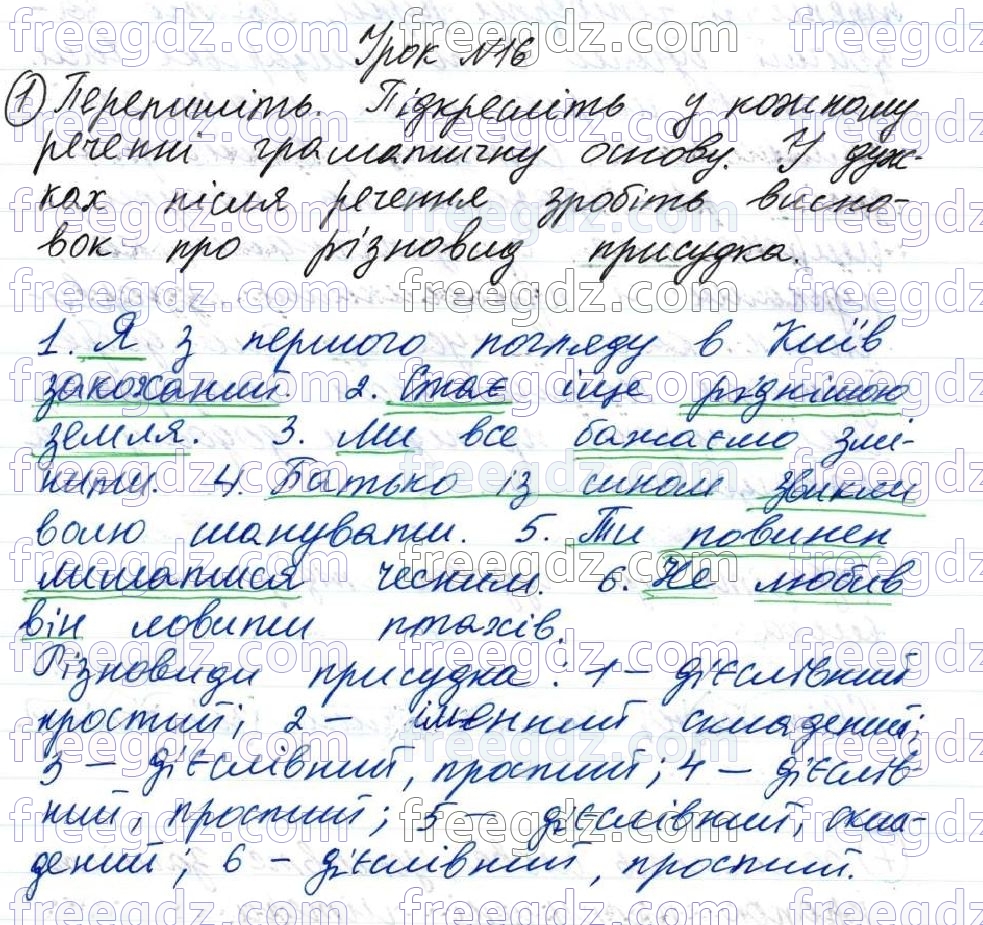 Урок №16
① Перепишіть. Підкресліть у кожному
реченні граматичну основу. У дуж-
ках після речення зробіть висно-
вок про різновид присудка.
1. Я з першого погляду в Київ
закоханий. 2. Стає іще ріднішою
земля. 3. Ми все бажаємо змі-
нити. 4. Батько із сином звикли
волю шанувати. 5. Ти повинен
лишатися чесним. 6. Не любив
він ловити птахів.
Різновиди присудка: 1 – дієслівний
простий; 2 – іменний складений;
3 – дієслівний, простий; 4 – дієслів-
ний, простий; 5 – дієслівний, скла-
дений; 6 – дієслівний, простий.
freegdz.com